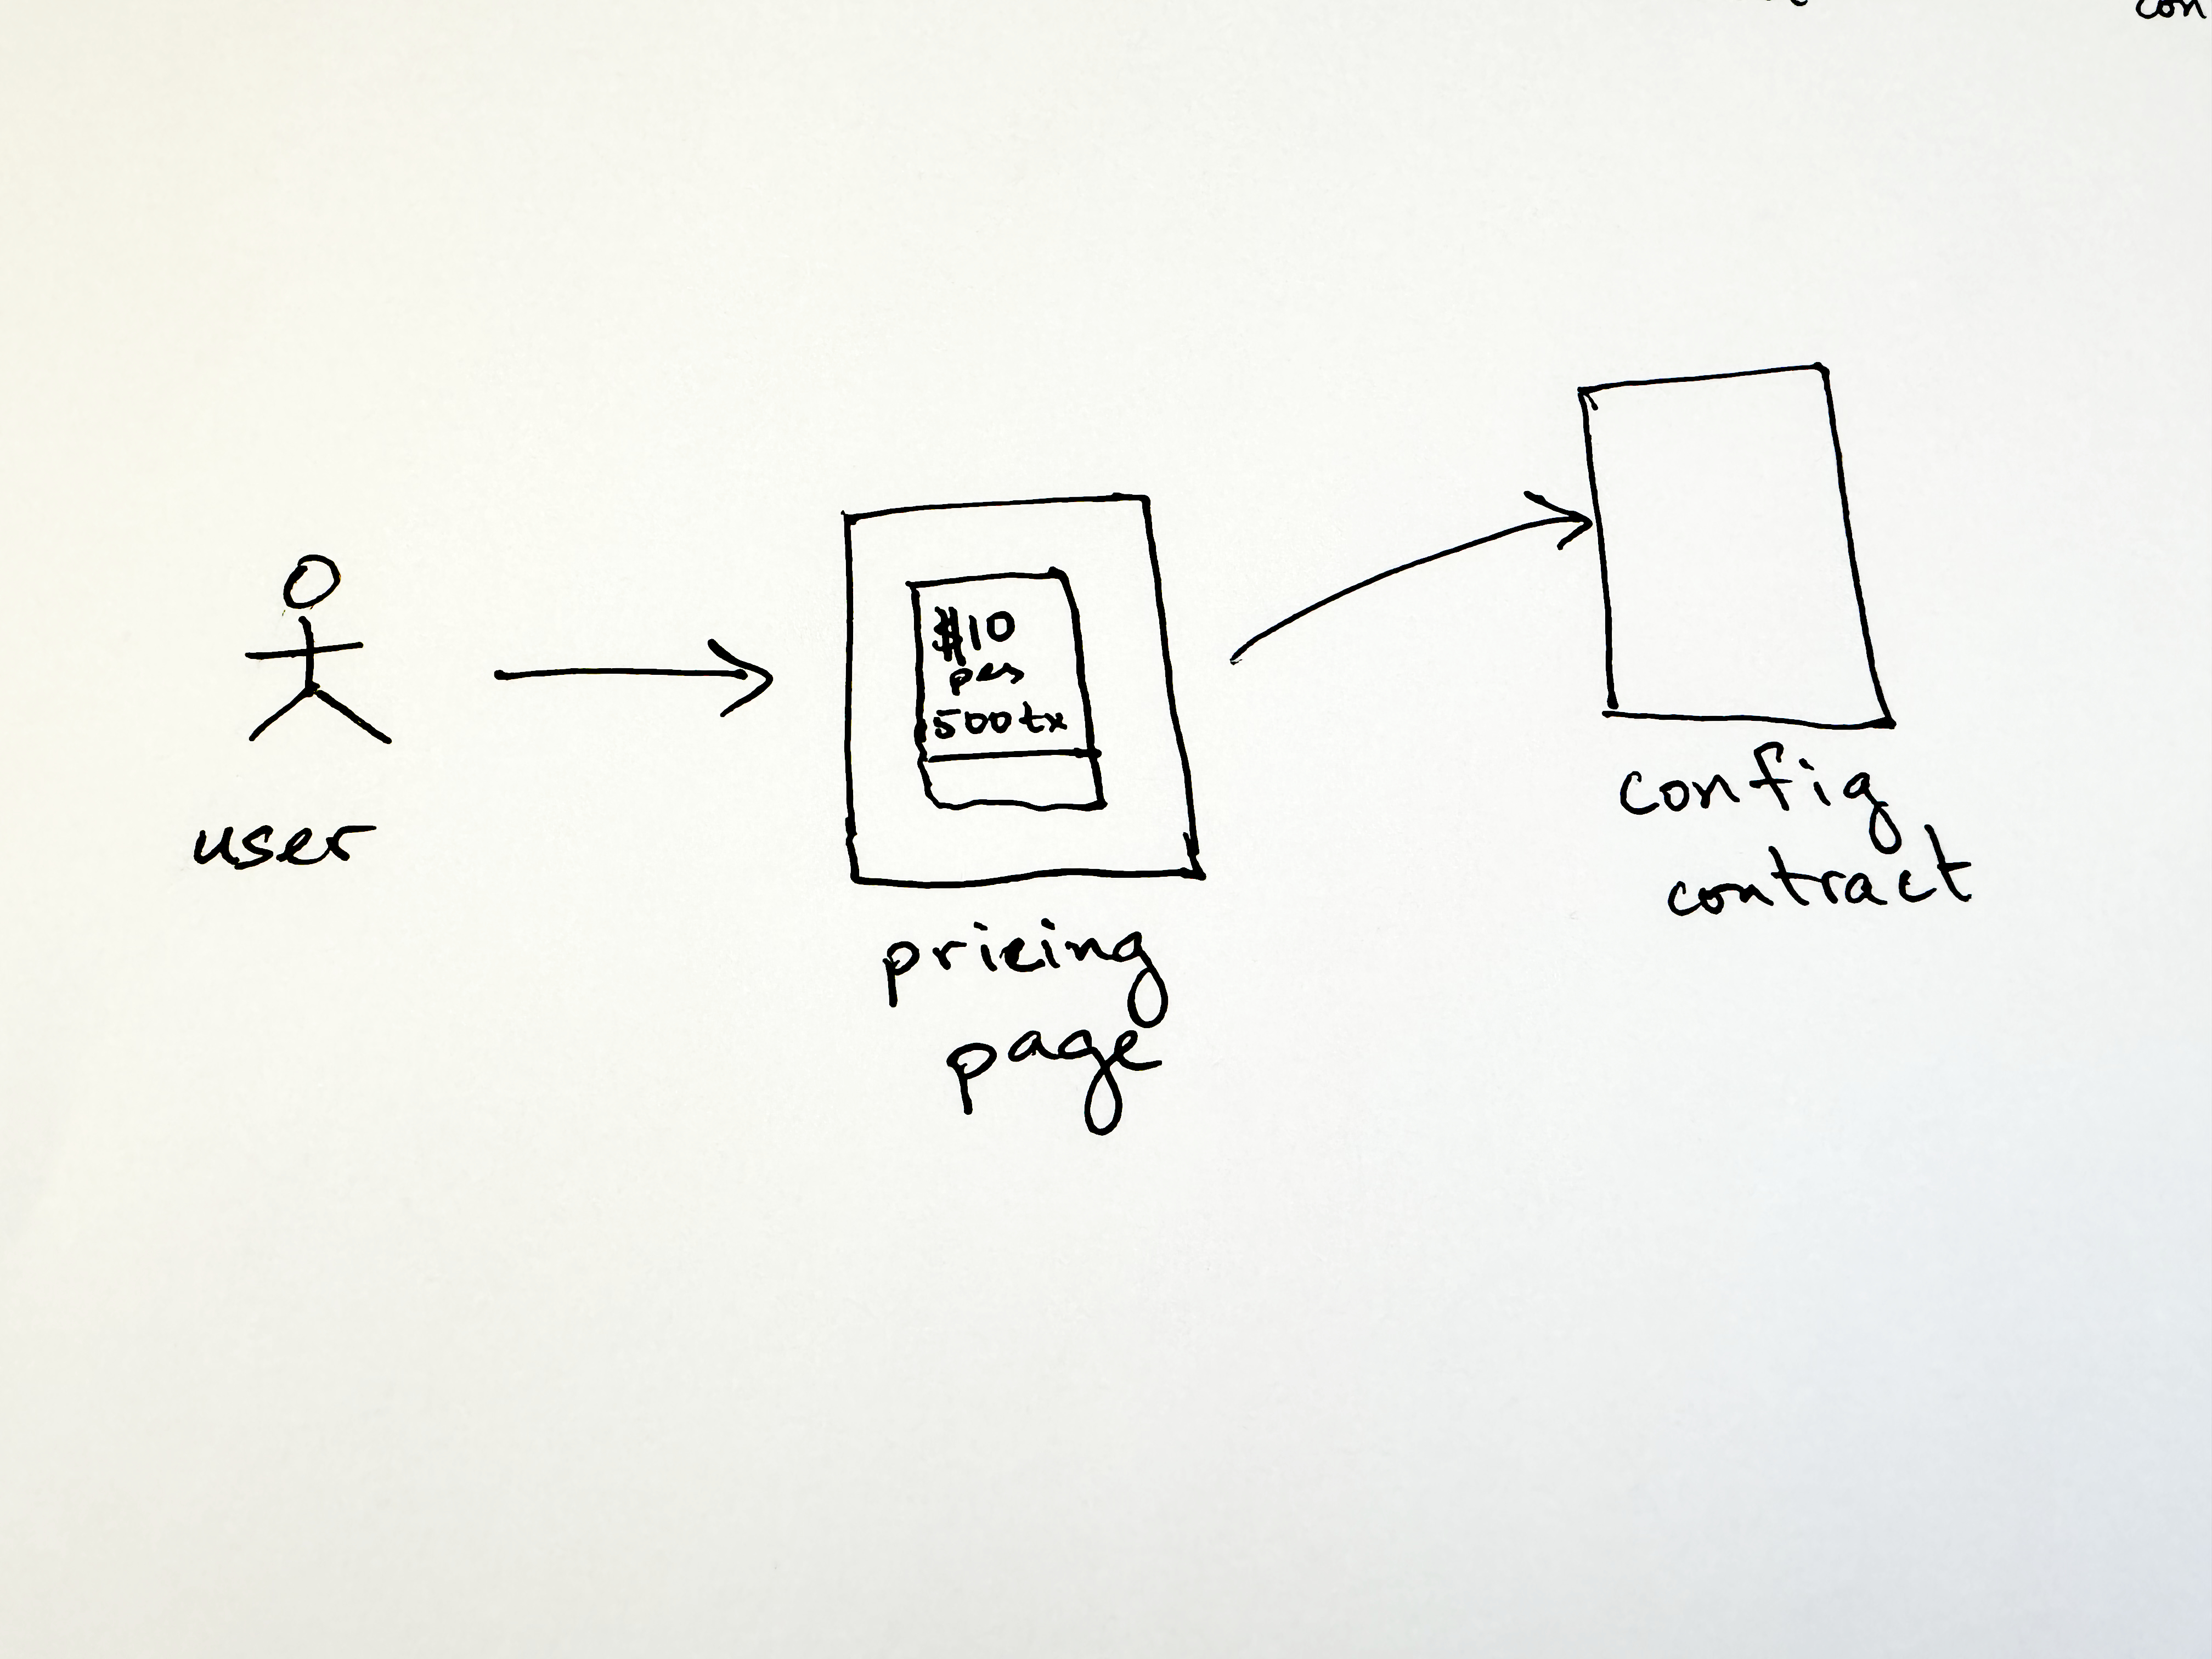 con
$10
per
500tx
user
pricing
page
config
contract